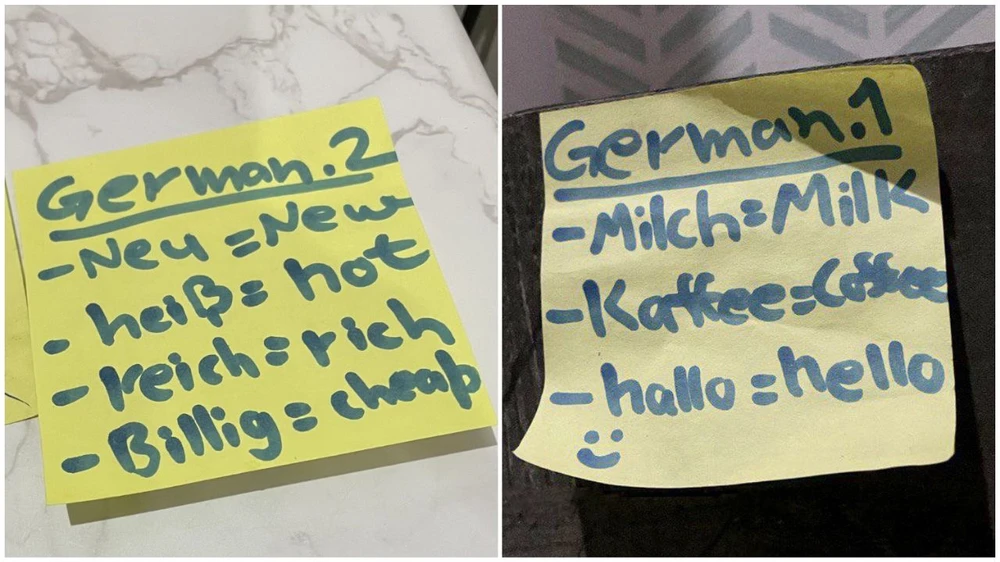 German.2
-Neu=New
- heiß= hot
- reich=rich
-Billig= cheap
German.1
-Milch=Milk
-Kaffee=Coffee
- hallo=hello